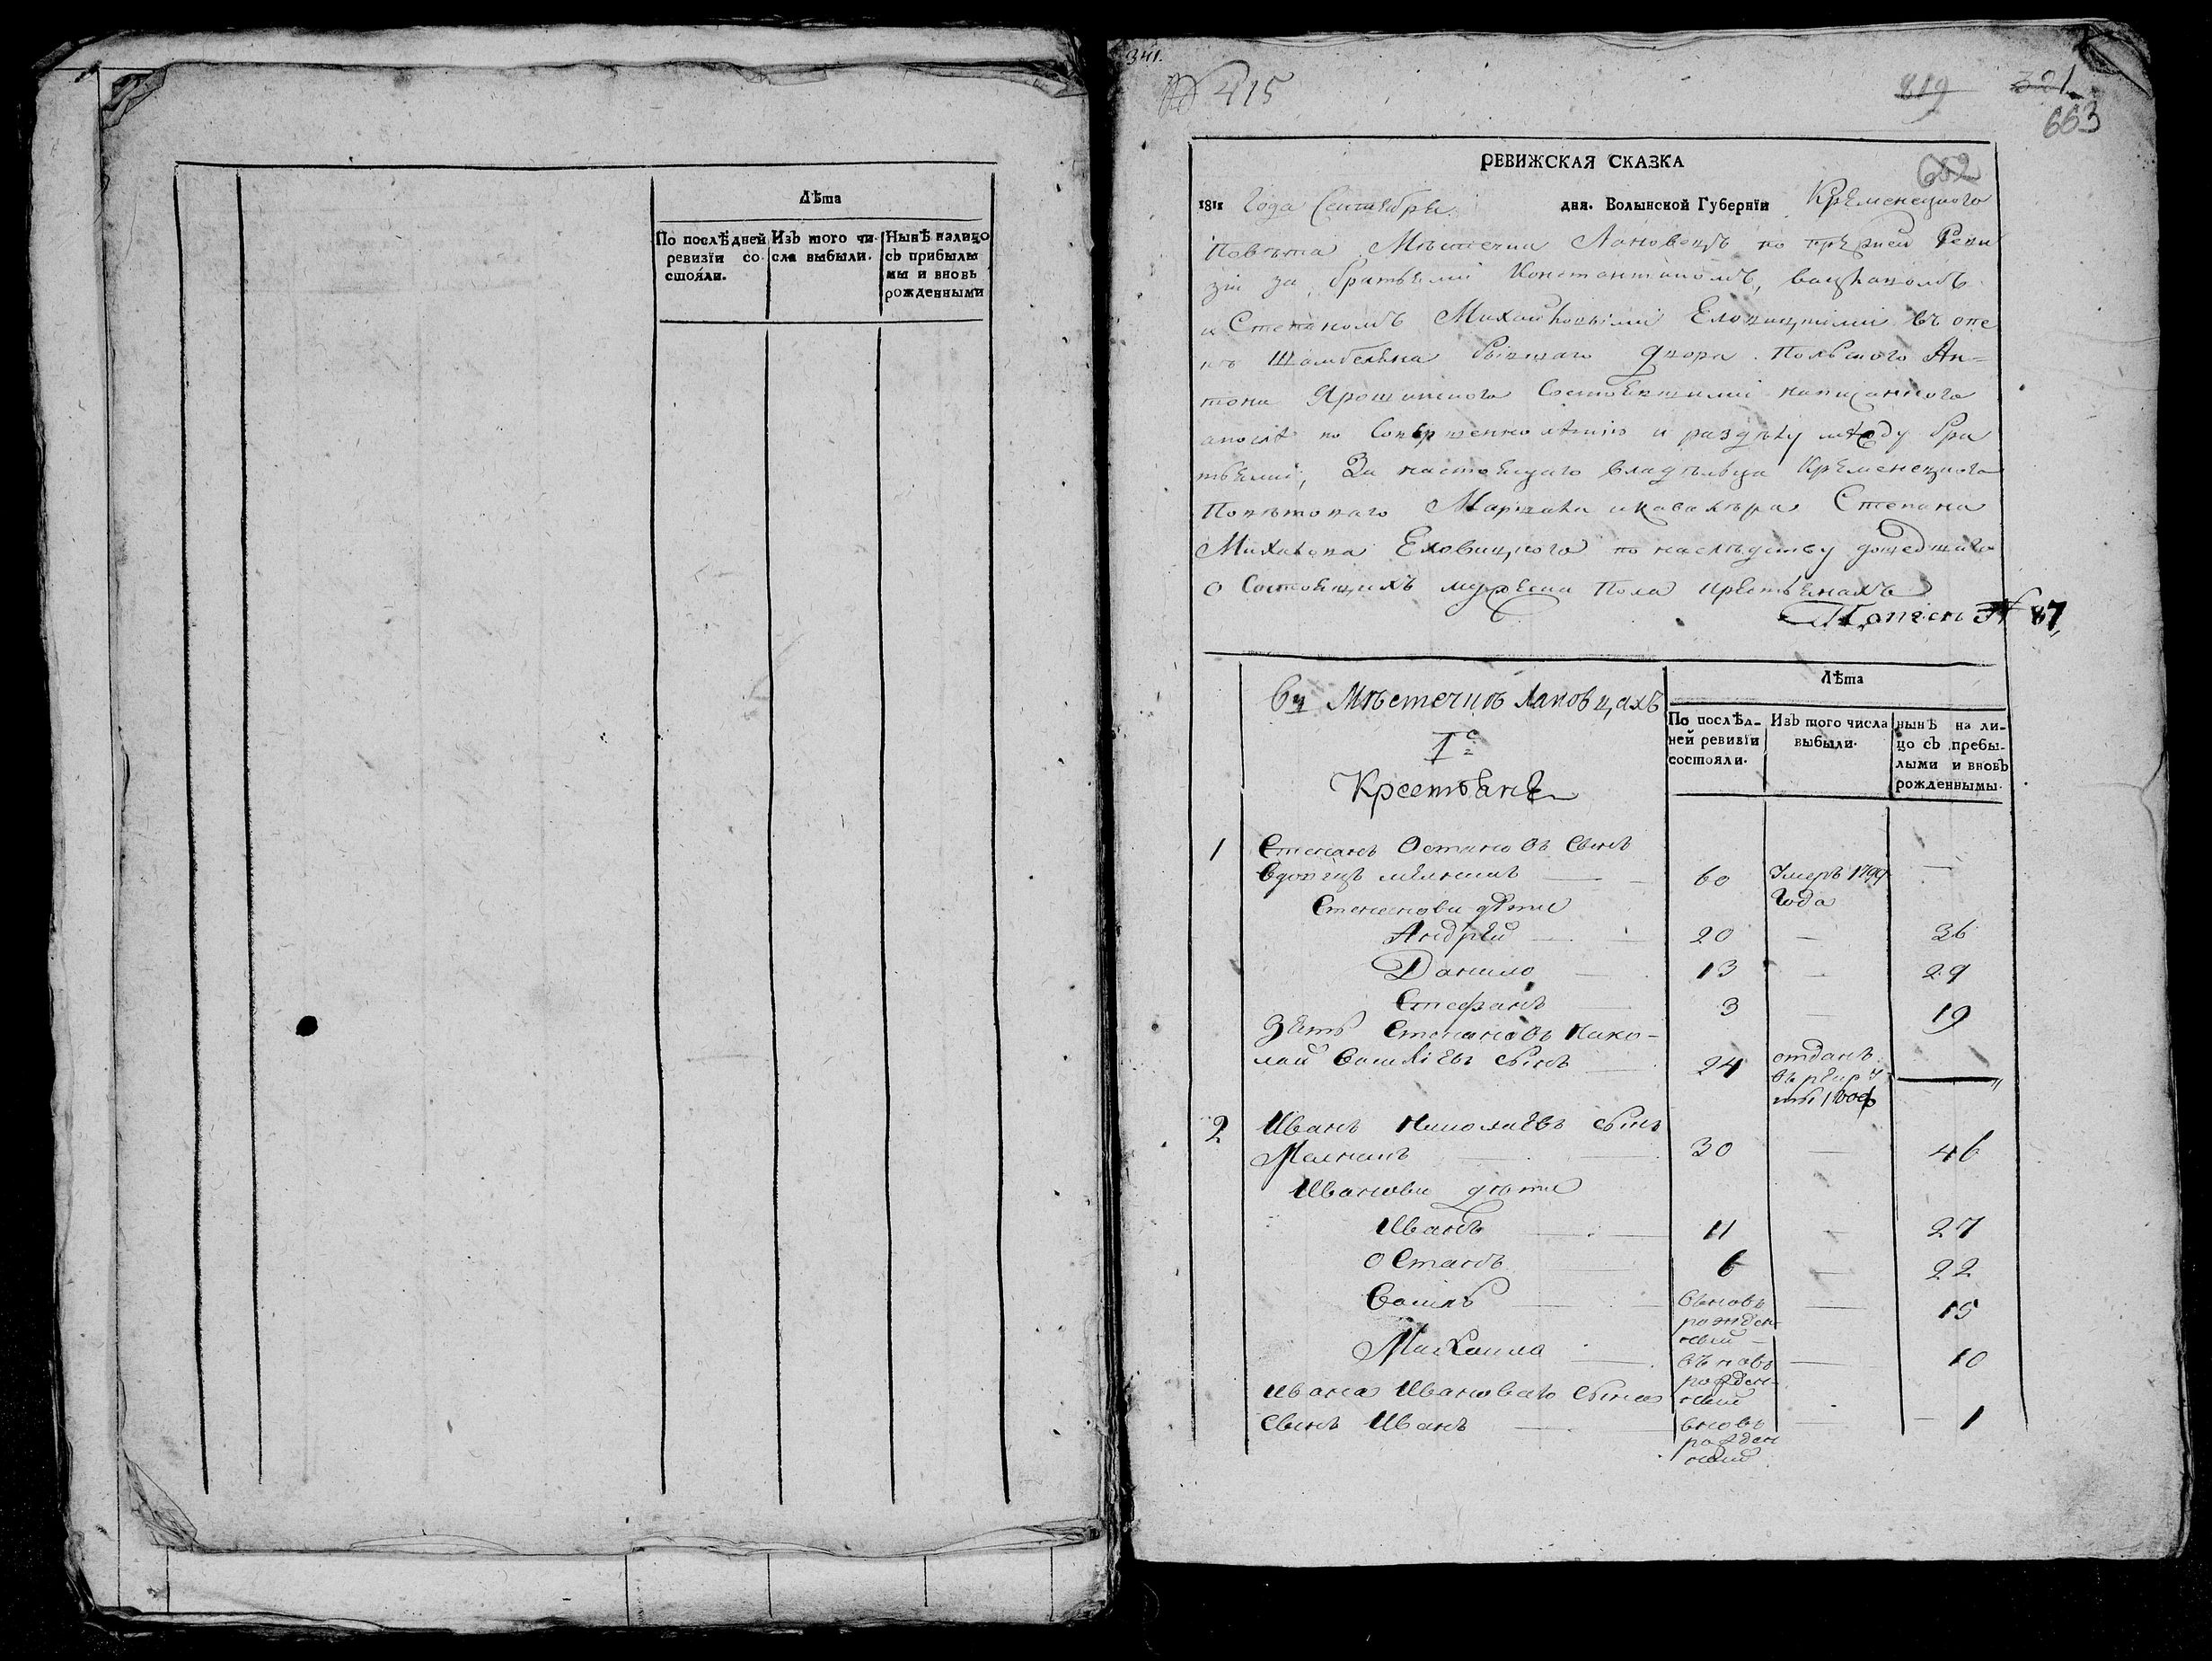 Лѣта
По послѣдней ревизїи состояли.
Изъ того числа выбыли.
Нынѣ налицо съ прибылы мы и вновь рожденными
341.
№ 415
819
321
663
662
РЕВИЖСКАЯ СКАЗКА
1811 Года Сентября дня. Волынской Губернїи Кременецкого
Повѣта Мѣстечка Лановецъ по прежней Реви
зіи за братьями Константиномъ,
и Степаномъ Михайловыми Еловицкими въ опе
къ Шамбеляна бывшаго двора Польского Ан-
тона Ярошинского Состоявшими написанного
а послѣ по Совершеннолѣтию и раздѣлу между бра
тьями, За настоящаго владѣльца Кременецкого
Повѣтоваго Маршала и кавалѣра Степана
Михалова Еловицкого по наслѣдству дошедшаго
о Состоящихъ мужеска Пола крестьянахъ
№ 87,
Въ Мѣстечкѣ Лановцахъ
Лѣта
По послѣд-ней ревизїи состояли.
Изъ того числа выбыли.
нынѣ на ли-цо съ пребы-лыми и вновъ рожденнымы.
1е
Крестьяне
1 Степанъ Остаповъ Сынъ
мелникъ — 60 Умеръ 1799 Года —
Степановы дѣти
Андрей — 20 — 36
Данило — 13 — 29
Стефанъ — 3 — 19
Зять Степановъ Нико-
лай Василіевъ сынъ — 24 отданъ въ рекруты —
2 Иванъ Николаевъ сынъ
Мелникъ — 30 — 46
Ивановы дѣти
Иванъ — 11 — 27
Остапъ — 6 — 22
Василь — вьновь рожденный — 15
Михайло — въновь рожденный — 10
Ивана Ивановаго сына
сынъ Иванъ — вновь рожденный — 1